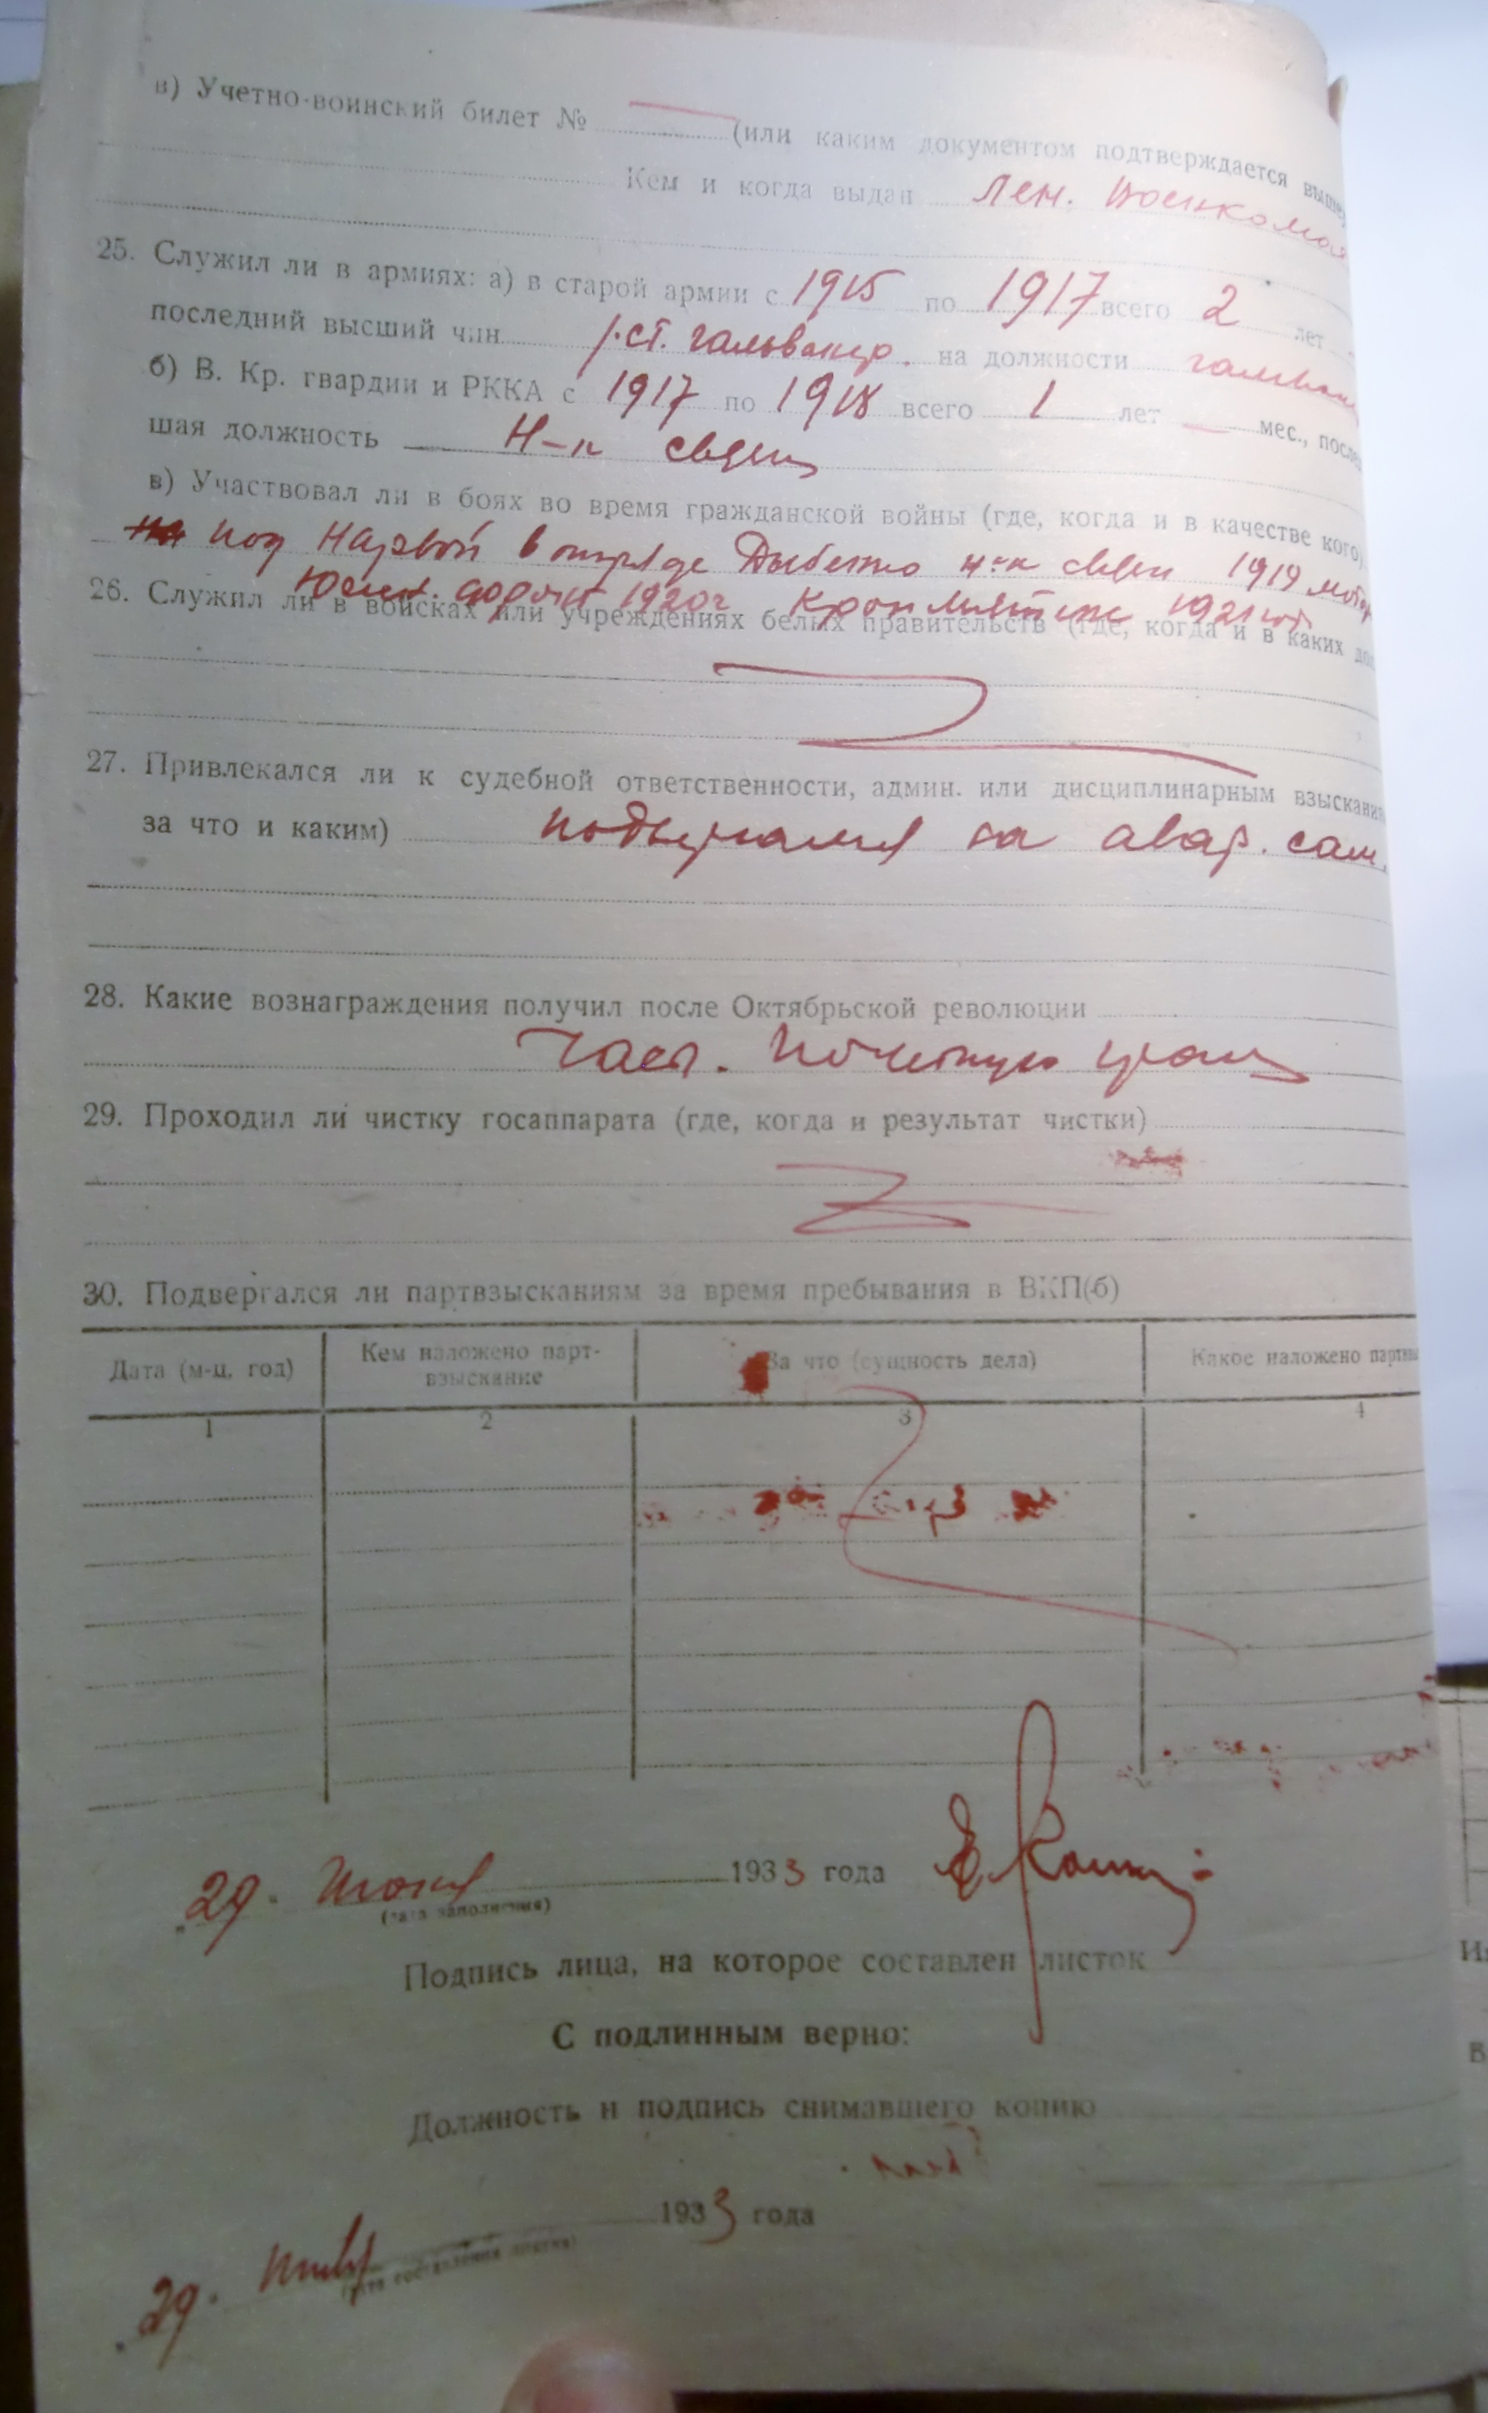 в) Учетно-воинский билет № (или каким документом подтверждается
Кем и когда выдан Лен. Военкомат
25. Служил ли в армиях: а) в старой армии с 1915 по 1917 всего 2 лет
последний высший чин ст. гальванер. на должности
б) В. Кр. гвардии и РККА с 1917 по 1918 всего 1 лет — мес., после
шая должность Н-к связи
в) Участвовал ли в боях во время гражданской войны (где, когда и в качестве кого)
под Нарвой в отряде Дыбенко н-к связи 1919
1920г Кронштадт 1921
26. Служил ли в войсках или учреждениях белых правительств (где, когда и в каких
27. Привлекался ли к судебной ответственности, админ. или дисциплинарным взыскания
за что и каким) подвергался за авар. сам.
28. Какие вознаграждения получил после Октябрьской революции
Часы. Почетную грам
29. Проходил ли чистку госаппарата (где, когда и результат чистки)
30. Подвергался ли партвзысканиям за время пребывания в ВКП(б)
Дата (м-ц, год) Кем наложено парт- За что (сущность дела) Какое наложено
взыскание
1 2 3 4
29. Июня 1933 года
(дата заполнения)
Подпись лица, на которое составлен листок
С подлинным верно:
Должность и подпись снимавшего копию
29. 1933 года
(дата составления листка)